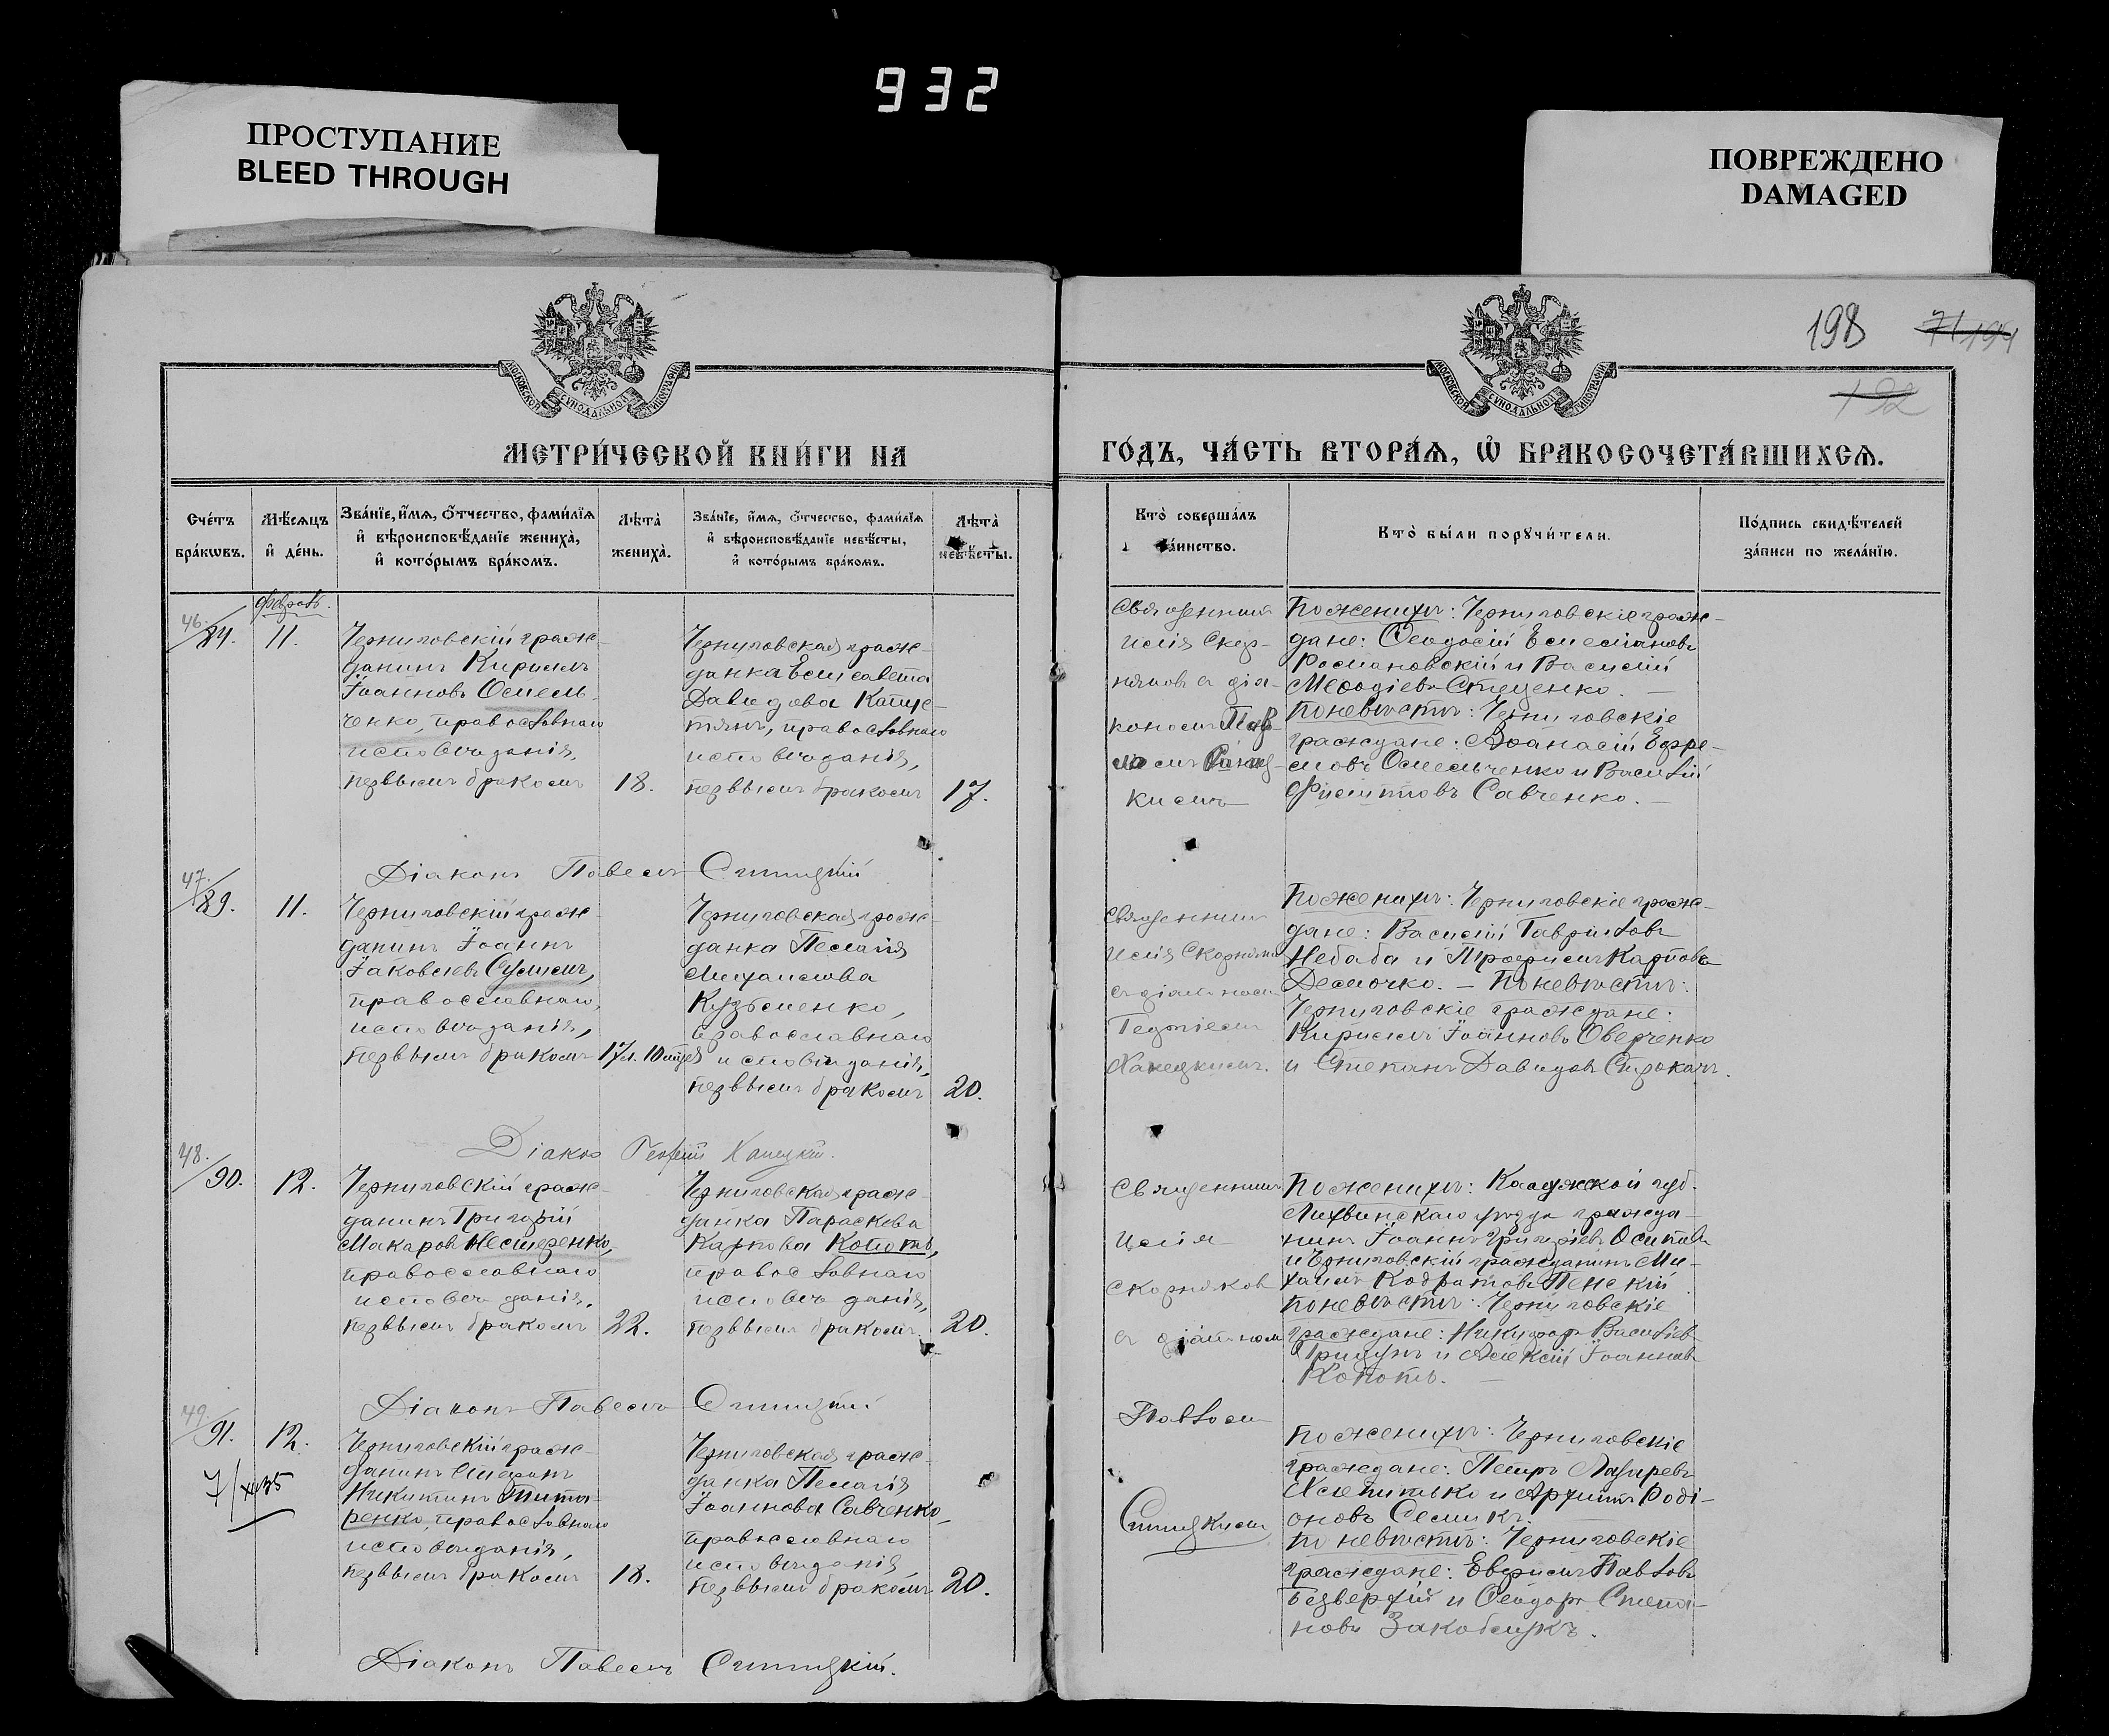 932
ПРОСТУПАНИЕ
BLEED THROUGH
ПОВРЕЖДЕНО
DAMAGED
МОСКОВСКОЙ СУНОДАЛЬНОЙ ТИПОГРАФІИ
МОСКОВСКОЙ СУНОДАЛЬНОЙ ТИПОГРАФІИ
198
192
МЕТРИ́ЧЕСКОЙ КНИ́ГИ НА
ГО́ДЪ, ЧА́СТЬ ВТОРА́Ѧ, Ѡ҆ БРАКОСОЧЕТА́ВШИХСѦ.
Сче́тъ
бра́кωвъ.
Мѣ́сяцъ
и҆ де́нь.
Зва́нїе, и҆́мя, ѻ҆́тчество, фами́лїя
и҆ вѣроисповѣ́данїе жениха̀,
и҆ кото́рымъ бра́комъ.
Лѣта̀
жениха̀.
Зва́нїе, и҆́мя, ѻ҆́тчество, фами́лїя
и҆ вѣроисповѣ́данїе невѣ́сты,
и҆ кото́рымъ бра́комъ.
Лѣта̀
невѣ́сты.
Кто̀ соверша́лъ
та́инство.
Кто̀ бы́ли порꙋчи́тели.
По́дпись свидѣ́телей
за́писи по жела́нїю.
46.
11.
Черниговскій граж-
данинъ Кириллъ
Іоанновъ Омель-
ченко, православнаго
исповѣданія,
первымъ бракомъ
18.
Черниговская граж-
данка Елисавета
Давидова Капус-
тянъ, православнаго
исповѣданія,
первымъ бракомъ
17.
Священникъ
Илія Скор-
няковъ съ діа-
кономъ Пав-
ломъ
По женихѣ: Черниговскіе граж-
дане: Ѳеодосій Емеліановъ
Романовскій и Василій
Меѳодіевъ Стеценко. —
По невѣстѣ: Черниговскіе
граждане: Аѳанасій Ефре-
мовъ Омельченко и Василій
Филиповъ Савченко. —
Діаконъ Павелъ
47.
89.
11.
Черниговскій граж-
данинъ Іоаннъ
Іаковлевъ
православнаго
исповѣданія,
первымъ бракомъ
17 л. 10 мѣс.
Черниговская граж-
данка Пелагія
Михаилова
Кузьменко,
православнаго
исповѣданія,
первымъ бракомъ
20.
Священникъ
Илія Скорняковъ
съ діакономъ
Георгіемъ
Ханецкимъ.
По женихѣ: Черниговскіе граж-
дане: Василій Гавриловъ
Небаба и Трофимъ Карповъ
Демочко. — По невѣстѣ:
Черниговскіе граждане:
Кириллъ Іоанновъ Оверченко
и Степанъ Давидовъ Строкачъ.
Діаконъ Георгій Ханецкій.
48.
90.
12.
Черниговскій граж-
данинъ Григорій
Макаровъ Нестеренко,
православнаго
исповѣданія,
первымъ бракомъ
22.
Черниговская граж-
данка Параскева
Карпова Копоть,
православнаго
исповѣданія,
первымъ бракомъ
20.
Священникъ
Илія
Скорняковъ
съ діакономъ
Павломъ
По женихѣ: Калужской губ.
Лихвинскаго уѣзда гражда-
нинъ Іоаннъ Григоріевъ Осиповъ
и Черниговскій гражданинъ Ми-
хаилъ Пенскій
По невѣстѣ: Черниговскіе
граждане: Никифоръ Василіевъ
и Алексій Іоанновъ
Копоть. —
Діаконъ Павелъ
49.
91.
12.
Черниговскій граж-
данинъ Стефанъ
Никитинъ Тита-
ренко, православнаго
исповѣданія,
первымъ бракомъ
18.
Черниговская граж-
данка Пелагія
Іоаннова Савченко,
православнаго
исповѣданія
первымъ бракомъ
20.
По женихѣ: Черниговскіе
граждане: Петръ Лазаревъ
и Родi-
оновъ
По невѣстѣ: Черниговскіе
граждане: Павловъ
и Ѳеодоръ Степа-
новъ
Діаконъ Павелъ